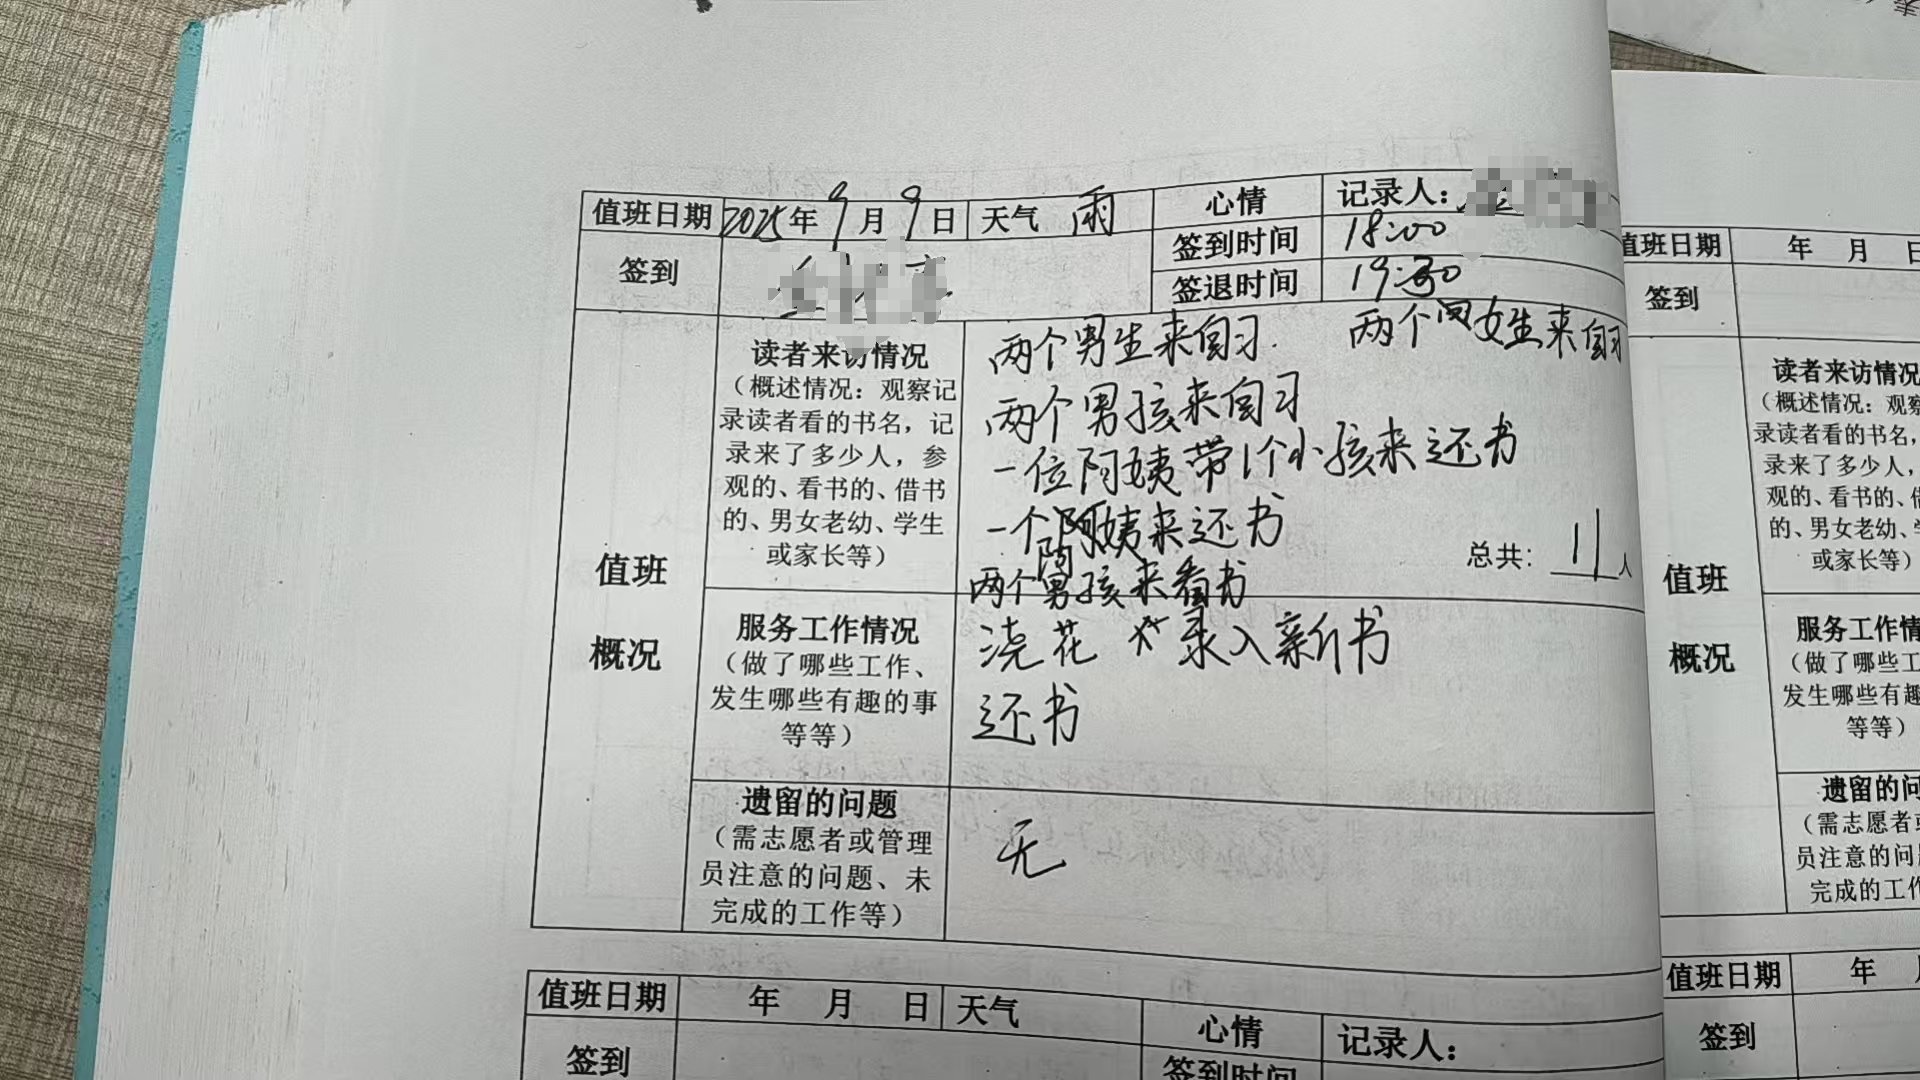 值班日期 2025年9月9日 天气 雨 心情 记录人：
签到 签到时间 18:00
签退时间 19:30
值班
概况
读者来访情况
（概述情况：观察记
录读者看的书名，记
录来了多少人，参
观的、看书的、借书
的、男女老幼、学生
或家长等）
两个男生来自习. 两个女生来自习
两个男孩来自习
一位阿姨带1个小孩来还书
一个阿姨来还书
两个男孩来看书
总共：11人
服务工作情况
（做了哪些工作、
发生哪些有趣的事
等等）
浇花 录入新书
还书
遗留的问题
（需志愿者或管理
员注意的问题、未
完成的工作等）
无
值班日期 年 月 日 天气 心情 记录人：
签到 签到时间
值班日期 年 月 日
签到
值班
概况
读者来访情况
（概述情况：观察
录读者看的书名，
录来了多少人，
观的、看书的、借
的、男女老幼、学
或家长等）
服务工作情
（做了哪些工
发生哪些有趣
等等）
遗留的问
（需志愿者或
员注意的问
完成的工作
值班日期 年 月
签到